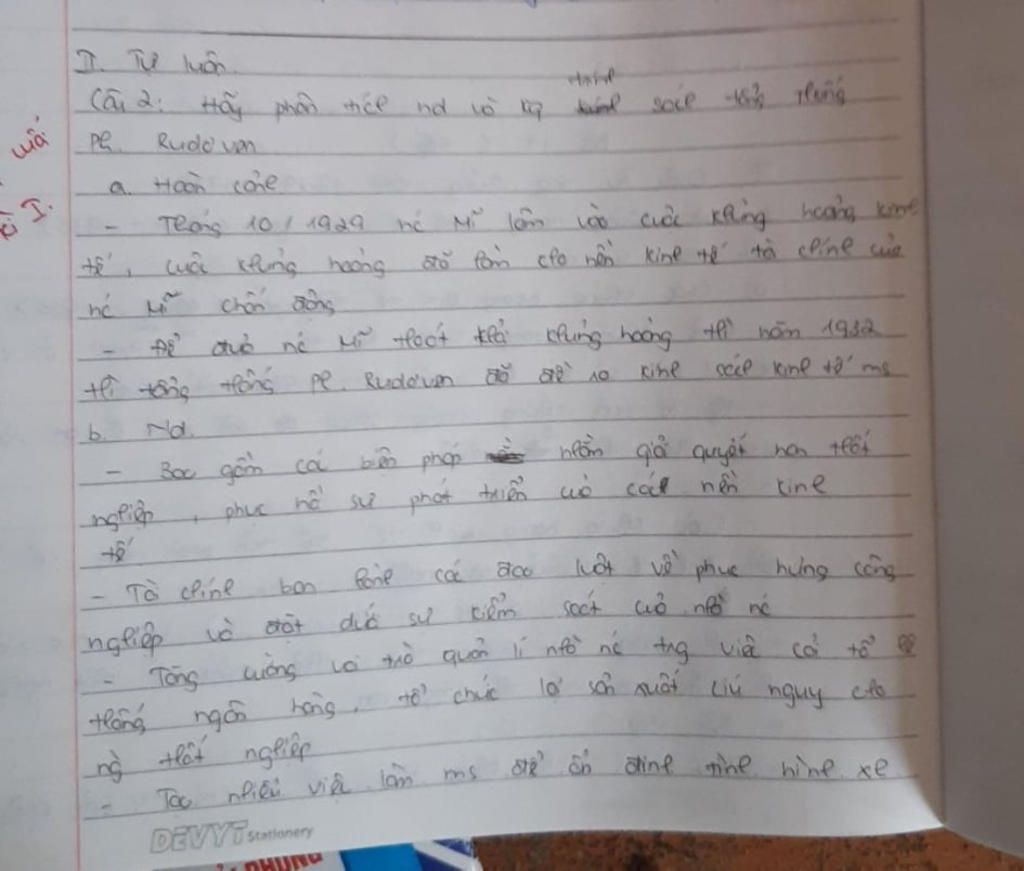 II. Tự luân.
Câu 2: Hãy phân tích nd và kq chính sách tổng thống
Ph. Rudơ ven
a. Hoàn cảnh
- Tháng 10 / 1929 nć Mĩ lâm vào cuộc khủng hoảng kinh
tế, cuộc khủng hoảng đã làm cho nền kinh tế tà chính của
nć Mĩ chấn động
- Để đưa nć Mĩ thoát khỏi khủng hoảng thì năm 1932
thì tổng thống Ph. Rudơven đã đề ra kinh sách kinh tế ms
b. Nd.
- Bao gồm các biện pháp nhằm giả quyết nạn thất
nghiệp, phục hồ sự phát triển của các nền kinh
tế
- Tà chính ban hành các đạo luật về phục hưng công
nghiệp và đặt dướ sự kiểm soát của nhà nć
- Tăng cường vai trò quản lí nhà nć trg việc cả tổ
thống ngân hàng, tổ chức lạ sản xuất cứu nguy cho
ng thất nghiệp
- Tạo nhiều việc làm ms để ổn định tình hình xh
DEVYT Stationery
I.